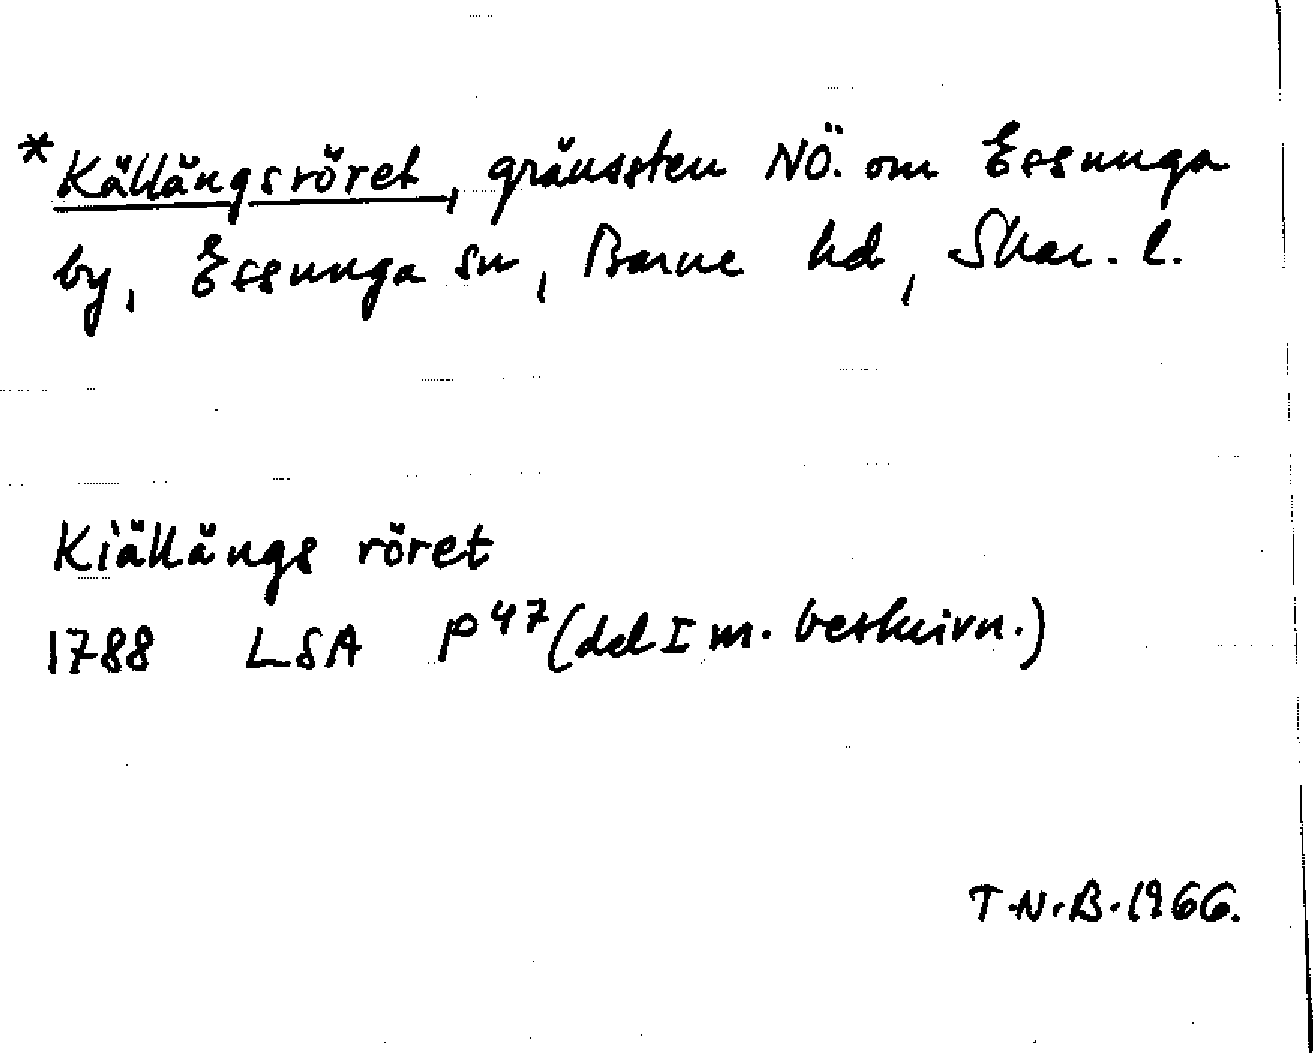 *Källängsröret, gränssten NÖ. om Essunga
by, Essunga sn, Barne hd, Skar. l.
Kiällängs röret
1788 LSA P 47 (del I m. beskrivn.)
T.N.B. 1966.